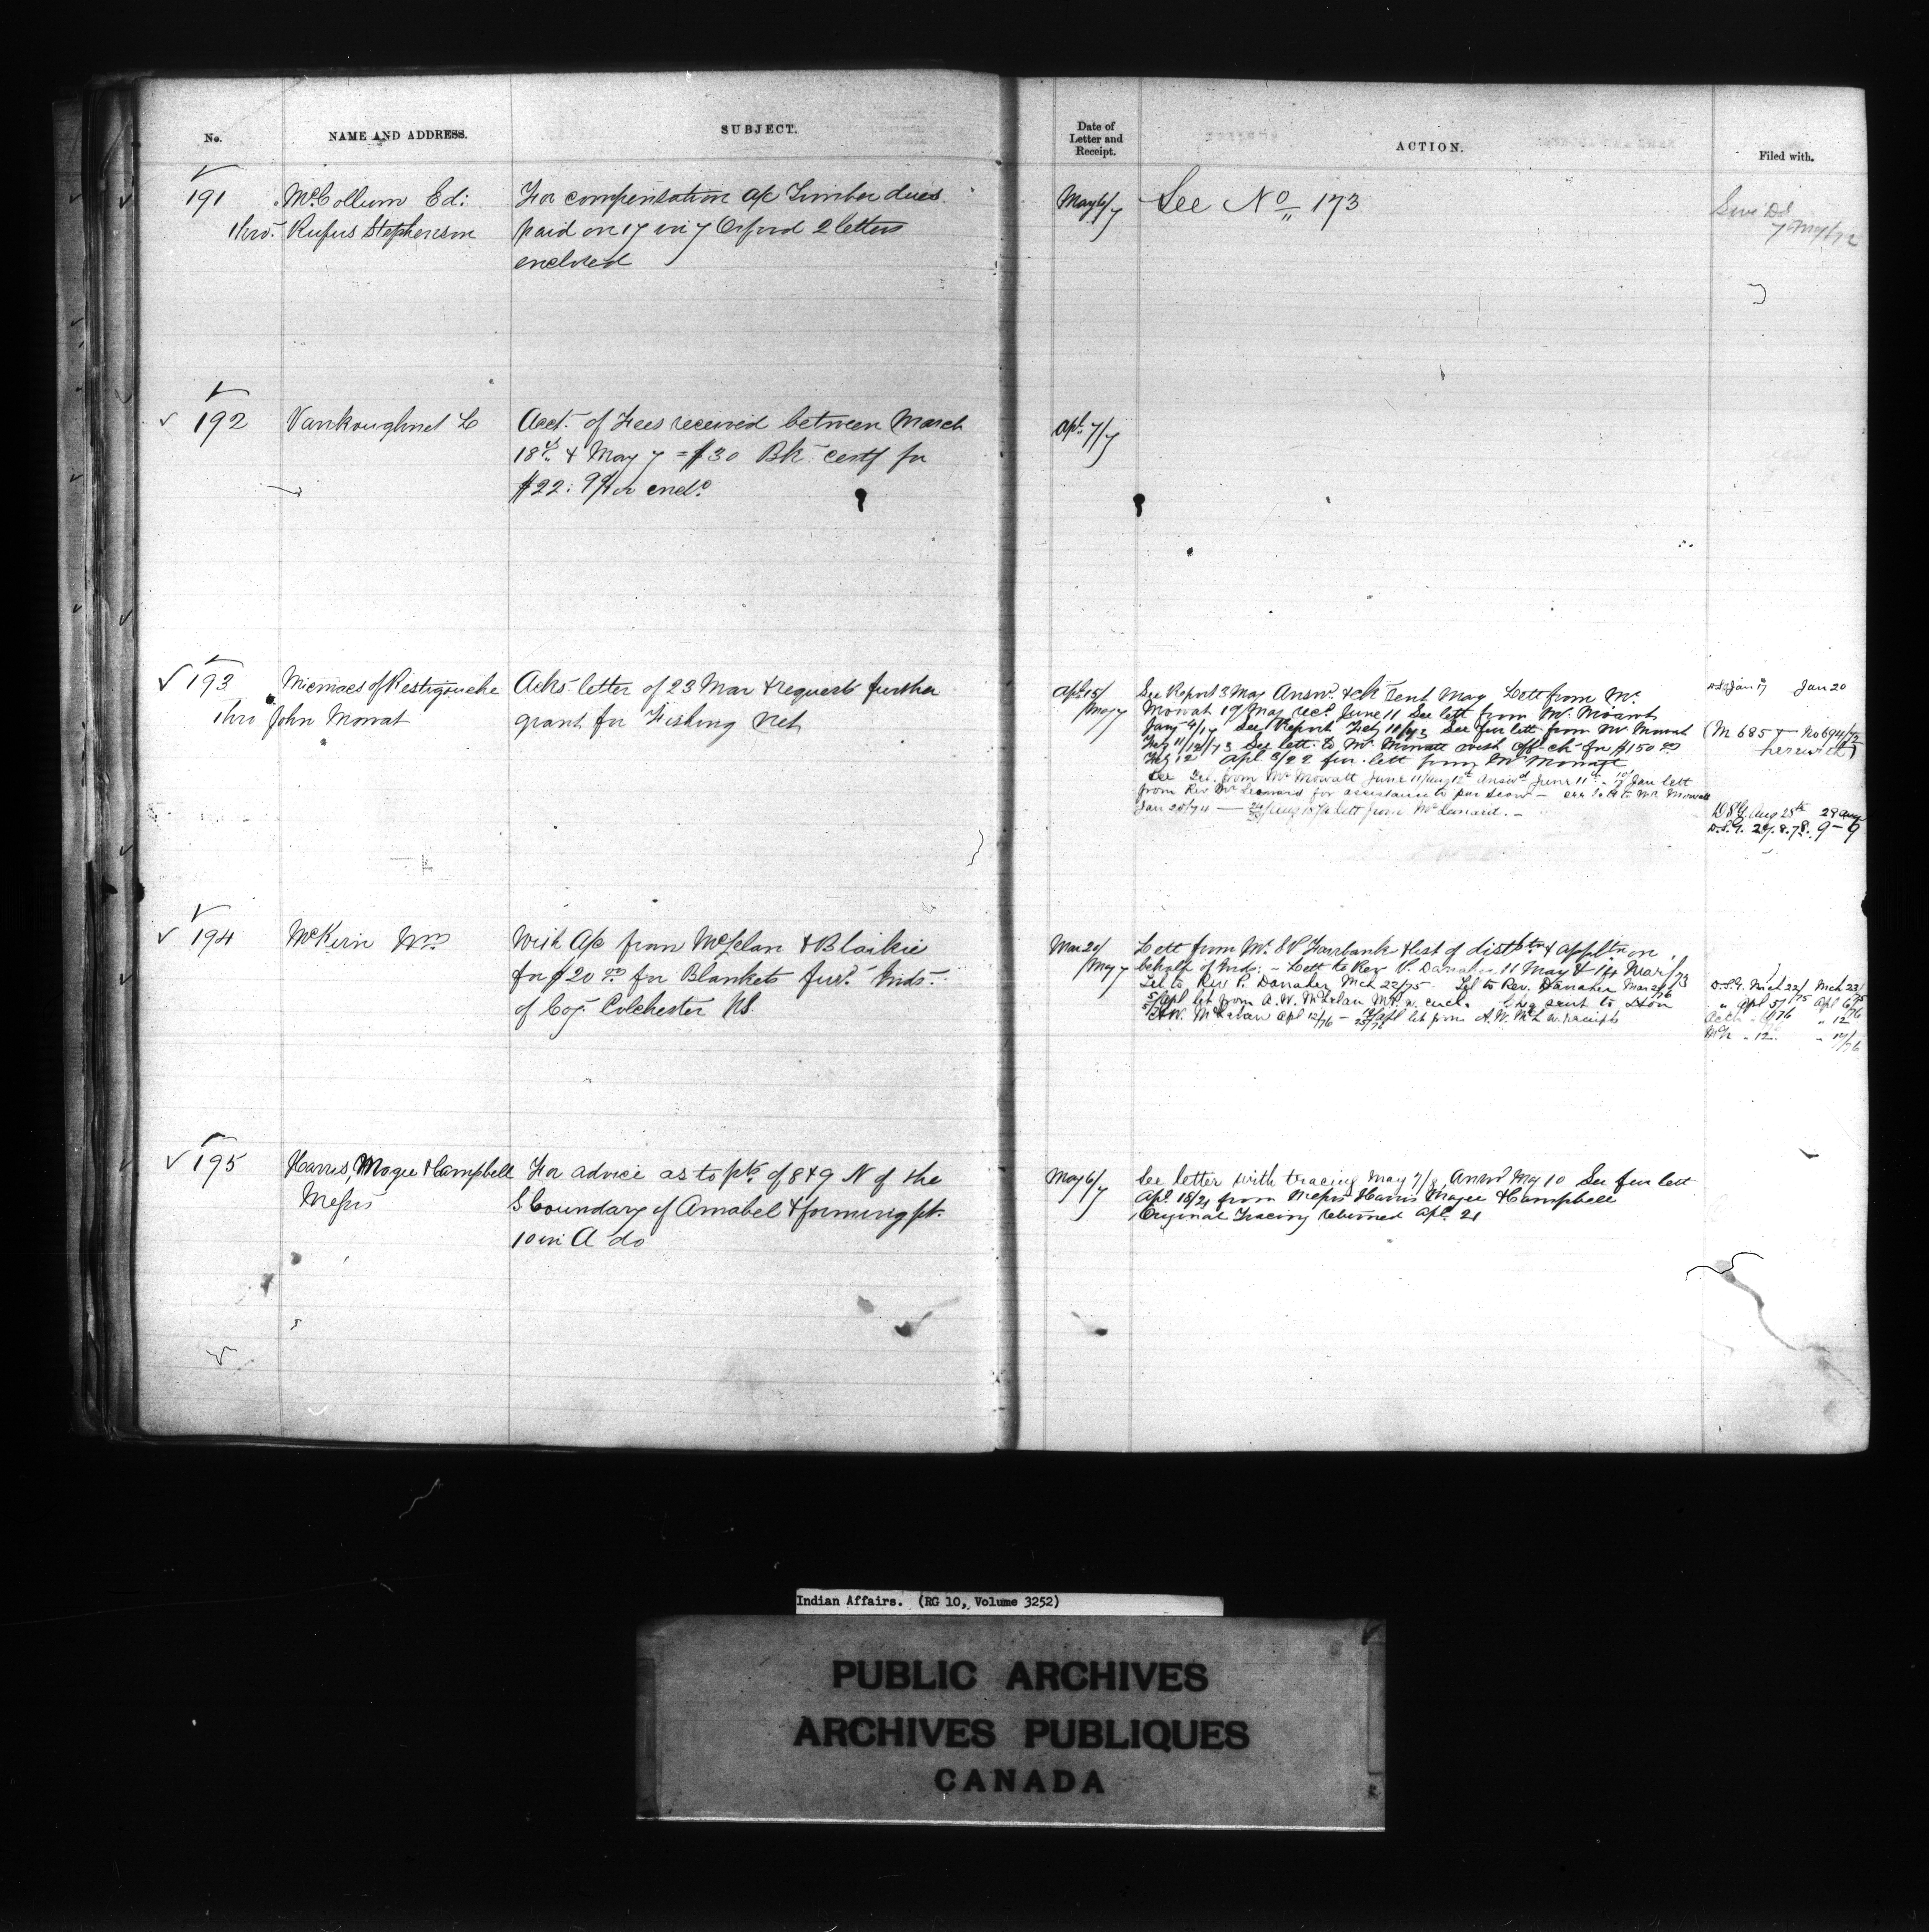 No. NAME AND ADDRESS. SUBJECT. Date of Letter and Receipt. ACTION. Filed with.
191 McCollum Ed: For compensation a/c Timber dues May 6/7 See No 173
thro. Rufus Stephenson paid on 17 in 7 Orford 2 letters
enclosed
192 Vankoughnet L Acct. of Fees received between March Apl. 7/7
18th & May 7 = $30 Bk certf for
$22: encld.
193 Micmacs of Restigouche Acks letter of 23 Mar & requests further Apl 15/May 7
thro John Mowat grant for Fishing net
See Report 3 May Answd. & ck sent May Lett from Mr.
Mowat 19 May recd. June 11 See lett from Mr. Mowat
Jany 4/17 See Report Feby 11/73 See fur lett from Mr Mowat
Feby 11/12/73 See lett. to Mr. Mowatt with off ch for $150 00
Feby 12 Apl 3/22 fur. lett from Mr Mowatt
See Lett. from Mr Mowatt June 11/Aug 12th Answd June 11th Jan lett
from Rev Mr Leonard for assistance to Mr Mowatt
Jan 28/74 — lett from Mr Leonard. —
Jan 17 Jan 20
(M 685 — No 694/73
herewith)
D.S.G. Aug 28th 29 Aug
D.S.G. 27.8.78. 9-9
194 McKeen Wm With a/c from McLelan & Blaikie Mar 20/May 7
for $20 00 for Blankets furd. Inds.
of Coy. Colchester NS.
Lett from Mr. S P Fairbank & list of distbtn & appltn on
behalf of Inds: - Lett to Rev P. Danaher 11 May & 14 Mar/73
Let to Rev P. Danaher Mch 22/75 Let to Rev. Danaher Mar 24/76
5/Apl let from A.W. McLelan M.P. w. encl. Chq sent to Hon
A.W. McLelan Apl 12/76 — Apl let from A.W. McL w. receipt
D.S.G. Mch 22/75 Mch 23/75
" Apl 5/76 Apl 6/76
" 12
" 12
195 Harris, Magee & Campbell For advice as to pts. of 8 & 9 N of the May 6/7
Messrs S boundary of Amabel & forming pt.
10 in A do
See letter with tracing May 7/8, Answd May 10 See fur lett
Apl. 18/21 from Messrs Harris Magee & Campbell
Original Tracing returned Apl. 21
Indian Affairs. (RG 10, Volume 3252)
PUBLIC ARCHIVES
ARCHIVES PUBLIQUES
CANADA